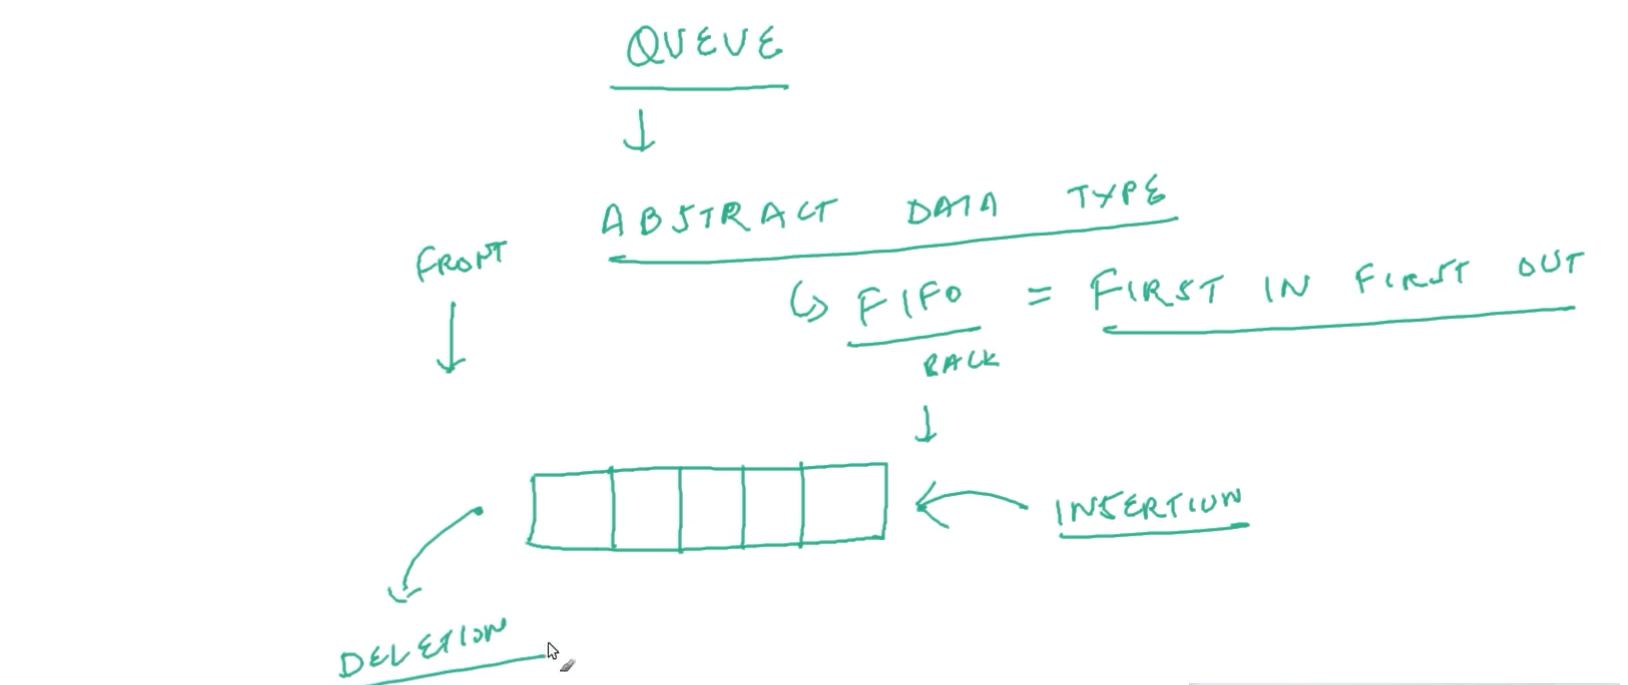 QUEUE
ABSTRACT DATA TYPE
FRONT
FIFO = FIRST IN FIRST OUT
BACK
INSERTION
DELETION